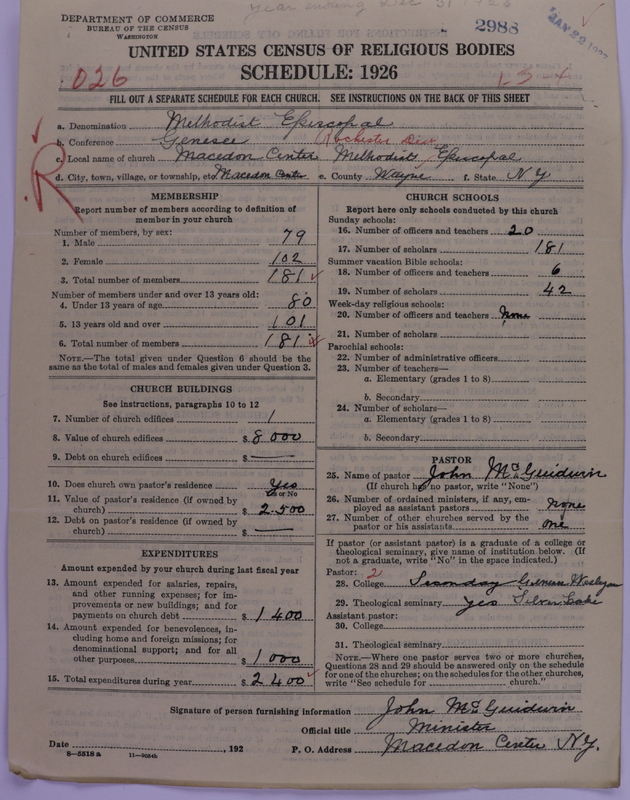 Year ending Dec 31 1926
DEPARTMENT OF COMMERCE
BUREAU OF THE CENSUS
WASHINGTON
2988
JAN 22 1927
UNITED STATES CENSUS OF RELIGIOUS BODIES
SCHEDULE: 1926
026
FILL OUT A SEPARATE SCHEDULE FOR EACH CHURCH. SEE INSTRUCTIONS ON THE BACK OF THIS SHEET
a. Denomination Methodist Episcopal
b. Conference Genesee Rochester Dist
c. Local name of church Macedon Center Methodist Episcopal
d. City, town, village, or township, etc Macedon Center e. County Wayne f. State N Y
R
MEMBERSHIP
Report number of members according to definition of
member in your church
Number of members, by sex:
1. Male 79
2. Female 102
3. Total number of members 181
Number of members under and over 13 years old:
4. Under 13 years of age 80
5. 13 years old and over 101
6. Total number of members 181
NOTE.—The total given under Question 6 should be
same as the total of males and females given under Question 3.
CHURCH BUILDINGS
See instructions, paragraphs 10 to 12
7. Number of church edifices 1
8. Value of church edifices $ 8000
9. Debt on church edifices $ —
10. Does church own pastor's residence? Yes
Yes or No
11. Value of pastor's residence (if owned by
church) $ 2.500
12. Debt on pastor's residence (if owned by
church) $ —
EXPENDITURES
Amount expended by your church during last fiscal year
13. Amount expended for salaries, repairs,
and other running expenses; for im-
provements or new buildings; and for
payments on church debt $ 1400
14. Amount expended for benevolences, in-
cluding home and foreign missions; for
denominational support; and for all
other purposes $ 1000
15. Total expenditures during year $ 2400
CHURCH SCHOOLS
Report here only schools conducted by this church
Sunday schools:
16. Number of officers and teachers 20
17. Number of scholars 181
Summer vacation Bible schools:
18. Number of officers and teachers 6
19. Number of scholars 42
Week-day religious schools:
20. Number of officers and teachers None
21. Number of scholars
Parochial schools:
22. Number of administrative officers
23. Number of teachers—
a. Elementary (grades 1 to 8)
b. Secondary
24. Number of scholars—
a. Elementary (grades 1 to 8)
b. Secondary
PASTOR
25. Name of pastor John McGuidwin
(If church has no pastor, write "None")
26. Number of ordained ministers, if any, em-
ployed as assistant pastors none
27. Number of other churches served by the
pastor or his assistants one
If pastor (or assistant pastor) is a graduate of a college or
theological seminary, give name of institution below. (If
not a graduate, write "No" in the space indicated.)
Pastor: 2
28. College Genesee Wesleyan
29. Theological seminary yes Silver Lake
Assistant pastor:
30. College
31. Theological seminary
NOTE.—Where one pastor serves two or more churches,
Questions 28 and 29 should be answered only on the schedule
for one of the churches; on the schedules for the other churches,
write "See schedule for church."
Signature of person furnishing information John McGuidwin
Official title Minister
Date , 192 P. O. Address Macedon Center N.Y.
8—5518 a